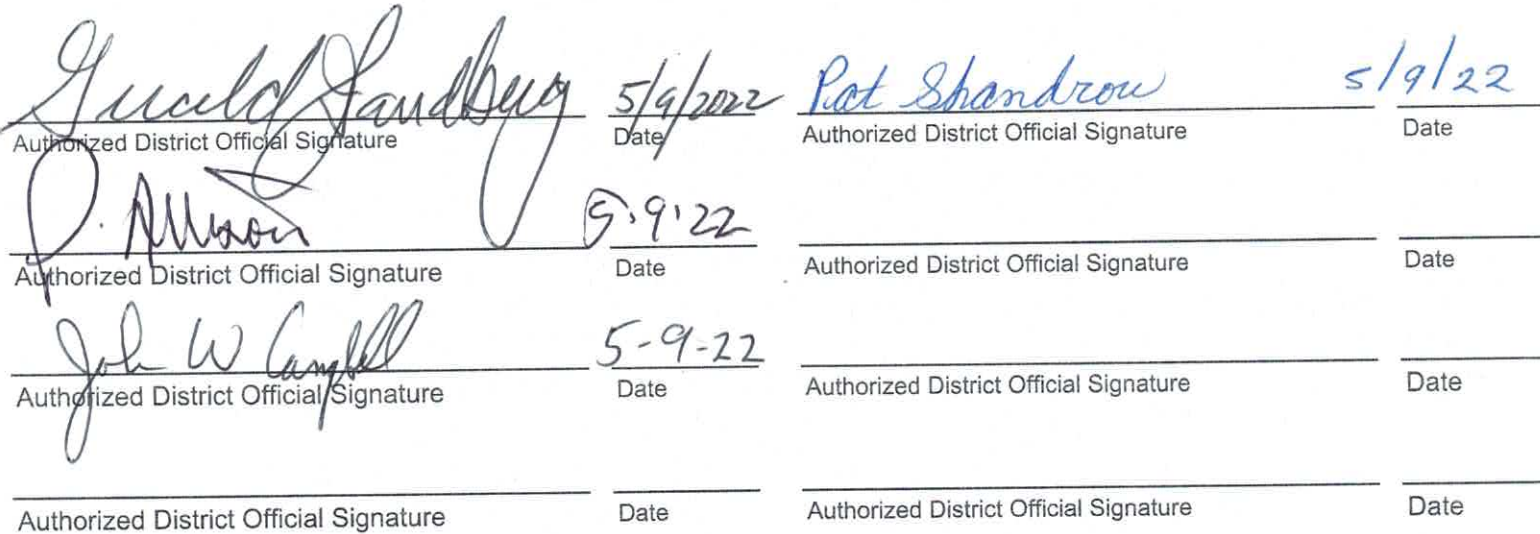 Gerald Sandberg 5/9/2022 Pat Shandrow 5/9/22
Authorized District Official Signature Date Authorized District Official Signature Date
P. Allison 5.9.22
Authorized District Official Signature Date Authorized District Official Signature Date
John W Campbell 5-9-22
Authorized District Official Signature Date Authorized District Official Signature Date
Authorized District Official Signature Date Authorized District Official Signature Date